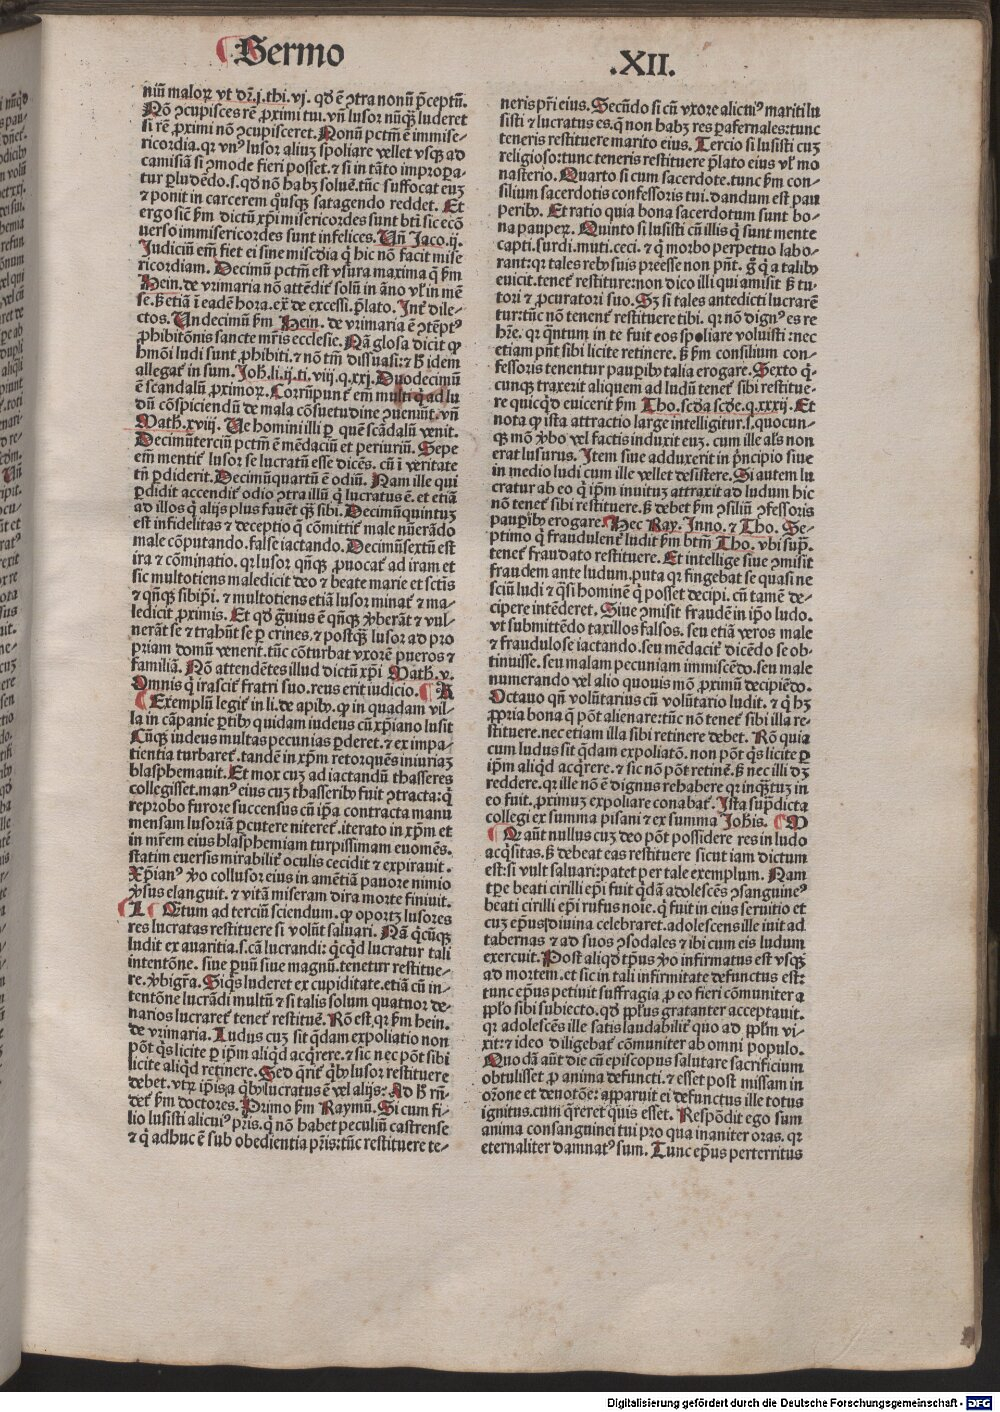 Sermo
.XII.
niū maloꝝ vt dr̄.j.thi.vj. qd̓ ē ꝯtra nonū p̄ceptū.
Nō ꝯcupisces rē ꝓximi tui. vn̄ lusor nūqꝫ luderet
si rē ꝓximi nō ꝯcupisceret. Nonū pctm̄ ē immise-
ricordia. qꝛ vnꝰ lusor aliuꝫ spoliare vellet vsqꝫ ad
camisiā si ꝯmode fieri posset. ⁊ si in tāto impropa-
tur ꝑludēdo. s. qd̓ nō habꝫ soluē. tūc suffocat euꝫ
⁊ ponit in carcerem qͦusqꝫ satagendo reddet. Et
ergo sicē ẜm dictū xp̄i misericordes sunt bt̄i sic ecō
uerso immisericordes sunt infelices. Un̄ Jaco.ij.
Judiciū em̄ fiet ei sine mis̄cdia q̇ hic nō facit mise
ricordiam. Decimū pctm̄ est vsura maxima q̇ ẜm
Hein. de vrimaria nō attēdit̉ solū in āno vl̓ in mē
se. ẞ etiā ī eadē hora. ex̄ de excessi. p̄lato. Int̓ dile-
ctos. Undecimū ẜm Hein. de vrimaria ē ꝯtēptꝰ
ꝓhibitōnis sancte mr̄is ecclesie. Nā glosa dicit ꝙ
hmōi ludi sunt ꝓhibiti. ⁊ nō tm̄ dissuasi: ⁊ h̓ idem
allegat̉ in sum. Joh̄. li.ij.ti.viij.q.xxj. Duodecimū
ē scandalū ꝓximoꝝ. Corrūpunt̉ em̄ multi q̇ ad lu
dū cōspiciendū de mala cōsuetudine ꝯueniūt. vn̄
Math.xviij. Ue homini illi ꝑ quē scādalū venit.
Decimūterciū pctm̄ ē mēdaciū et periuriū. Sepe
em̄ mentit̉ lusor se lucratū esse dicēs. cū ī veritate
tn̄ ꝑdiderit. Decimūquartū ē odiū. Nam ille qui
ꝑdidit accendit̉ odio ꝯtra illū q̇ lucratus ē. et etiā
ad illos q̇ alijs plus fauēt qꝫ sibi. Decimūquintuꝫ
est infidelitas ⁊ deceptio q̄ cōmittit̉ male nūerādo
male cōputando. false iactando. Decimūsextū est
ira ⁊ cōminatio. qꝛ lusor qn̄qꝫ ꝓuocat̉ ad iram et
sic multotiens maledicit deo ⁊ beate marie et sctīs
⁊ qn̄qꝫ sibip̄i. ⁊ multotiens etiā lusor minat̉ ⁊ ma-
ledicit ꝓximis. Et qd̓ gͣuius ē qn̄qꝫ v̓berāt ⁊ vul-
nerāt se ⁊ trahūt se ꝑ crines. ⁊ postqꝫ lusor ad pro
priam domū venerit. tūc cōturbat vxorē pueros ⁊
familiā. Nō attendētes illud dictū xp̄i Math.v.
Omnis q̇ irascit̉ fratri suo. reus erit iudicio. ¶ K
¶ Exemplū legit̉ in li. de apibꝰ. ꝙ in quadam vil-
la in cāpanie ꝑtibꝰ quidam iudeus cū xp̄iano lusit
Cūqꝫ iudeus multas pecunias ꝑderet. ⁊ ex impa-
tientia turbaret̉. tandē in xp̄m retorquēs iniuriaꝫ
blasphemauit. Et mox cuꝫ ad iactandū thasseres
collegisset. manꝰ eius cuꝫ thasseribꝰ fuit ꝯtracta: q̇
reprobo furore succensus cū ip̄a contracta manu
mensam lusoriā ꝑcutere niteret̉. iterato in xp̄m et
in mr̄em eius blasphemiam turpissimam euomēs.
statim euersis mirabilit̓ oculis cecidit ⁊ expirauit.
Xp̄ianꝰ v̓o collusor eius in amētiā pauore nimio
v̓sus elanguit. ⁊ vitā miseram dira morte finiuit.
¶ L ¶ Qͣtum ad terciū sciendum. ꝙ oportꝫ lusores
res lucratas restituere si volūt saluari. Nā q̇cūqꝫ
ludit ex auaritia. s. cā lucrandi: q̇cqd̓ lucratur tali
intentōne. siue ꝑuū siue magnū. tenetur restitue-
re. v̓bigr̄a. Siq̇s luderet ex cupiditate. etiā cū in-
tentōne lucrādi multū ⁊ si talis solum quatuor de-
narios lucraret̉ tenet̉ restituē. Rō est. qꝛ ẜm hein.
de vrimaria. Ludus cuꝫ sit qd̓am expoliatio non
pōt q̇s licite ꝑ ip̄m aliqd̓ acq̇rere. ⁊ sic nec pōt sibi
licite aliqd̓ retinere. Sed q̄rit̉ qͥbꝰ lusor restituere
debet. vtꝝ ip̄is a qͥbꝰ lucratus ē vel alijs: Ad h̓ rn̄-
det̉ ẜm doctores. Primo ẜm Raymū. Si cum fi-
lio lusisti alicuiꝰ pr̄is. q̇ nō habet peculiū castrense
⁊ q̇ adhuc ē sub obedientia pr̄is: tūc restituere te-
neris pr̄i eius. Secūdo si cū vxore alicuiꝰ mariti lu
sisti ⁊ lucratus es. q̄ non habꝫ res ꝑafernales: tunc
teneris restituere marito eius. Tercio si lusisti cuꝫ
religioso: tunc teneris restituere p̄lato eius vl̓ mo
nasterio. Quarto si cum sacerdote. tunc ẜm con-
silium sacerdotis confessoris tui. dandum est pau
peribꝰ. Et ratio quia bona sacerdotum sunt bo-
na pauperꝝ. Quinto si lusisti cū illis q̇ sunt mente
capti. surdi. muti. ceci. ⁊ q̇ morbo perpetuo labo-
rant: qꝛ tales rebꝰ suis preesse non pn̄t. g̊ q̇ a talibꝰ
euicit. tenet̉ restituere: non dico illi qui amisit ẞ tu-
tori ⁊ ꝓcuratori suo. Sꝫ si tales antedicti lucrarē
tur: tūc nō tenent̉ restituere tibi. qꝛ nō dignꝰ es re
hr̄e. qꝛ qͣntum in te fuit eos spoliare voluisti: nec
etiam pn̄t sibi licite retinere. ẞ ẜm consilium con-
fessoris tenentur pauꝑibꝰ talia erogare. Sexto q̇-
cunqꝫ traxerit aliquem ad ludū tenet̉ sibi restitue-
re quicqd̓ euicerit ẜm Tho. scd̓a scd̓e.q.xxxij. Et
nota ꝙ ista attractio large intelligitur. s. quocun-
qꝫ mō v̓bo vel factis induxit euꝫ. cum ille al̓s non
erat lusurus. Item siue adduxerit in p̄ncipio siue
in medio ludi cum ille vellet desistere. Si autem lu
cratur ab eo q̇ ip̄m inuituꝫ attraxit ad ludum hic
nō tenet̉ sibi restituere. ẞ debet ẜm ꝯsiliū ꝯfessoris
pauꝑibꝰ erogare. Hec Ray. Inno. ⁊ Tho. Se-
ptimo q̇ fraudulent̓ ludit ẜm btm̄ Tho. vbi supͣ.
tenet̉ fraudato restituere. Et intellige siue ꝯmisit
fraudem ante ludum. puta qꝛ fingebat se quasi ne
sciū ludi ⁊ qͣsi hominē q̇ posset decipi. cū tamē de-
cipere intēderet. Siue ꝯmisit fraudē in ip̄o ludo.
vt submittēdo taxillos falsos. seu etiā veros male
⁊ fraudulose iactando. seu mēdacit̓ dicēdo se ob-
tinuisse. seu malam pecuniam immiscēdo. seu male
numerando vel alio quouis mō ꝓximū decipiēdo.
Octauo qn̄ volūtarius cū volūtario ludit. ⁊ q̇ hꝫ
ꝓpria bona q̄ pōt alienare: tūc nō tenet̉ sibi illa re-
stituere. nec etiam illa sibi retinere debet. Rō quia
cum ludus sit qd̓am expoliatō. non pōt q̇s licite ꝑ
ip̄m aliqd̓ acq̇rere. ⁊ sic nō pōt retinē. ẞ nec illi dꝫ
reddere. qꝛ ille nō ē dignus rehabere qꝛ inqͣꝫtuꝫ in
eo fuit. ꝓximuꝫ expoliare conabat̉. Ista supͣdicta
collegi ex summa pisani ⁊ ex summa Joh̄is. ¶ M
¶ Qꝛ aūt nullus cuꝫ deo pōt possidere res in ludo
acq̇sitas. ẞ debeat eas restituere sicut iam dictum
est: si vult saluari: patet per tale exemplum. Nam
tp̄e beati cirilli ep̄i fuit qd̓ā adolescēs ꝯsanguineꝰ
beati cirilli ep̄i rufus noīe. q̇ fuit in eius seruitio et
cuꝫ ep̄us diuina celebraret. adolescens ille iuit ad
tabernas ⁊ ad suos ꝯsodales ⁊ ibi cum eis ludum
exercuit. Post aliqd̓ tp̄us v̓o infirmatus est vsqꝫ
ad mortem. et sic in tali infirmitate defunctus est:
tunc ep̄us petiuit suffragia ꝓ eo fieri cōmuniter a
pp̄lo sibi subiecto. qd̓ pp̄lus gratanter acceptauit.
qꝛ adolescēs ille satis laudabilit̓ quo ad pp̄lm vi-
xit: ⁊ ideo diligebat̉ cōmuniter ab omni populo.
Quodā aūt die cū episcopus salutare sacrificium
obtulisset ꝓ anima defuncti ⁊ esset post missam in
orōne et deuotōe: apparuit ei defunctus ille totus
ignitus. cum q̄reret quis esset. Respōdit ego sum
anima consanguinei tui pro qua inaniter oras. qꝛ
eternaliter damnatꝰ sum. Tunc ep̄us perterritus
Digitalisierung gefördert durch die Deutsche Forschungsgemeinschaft - DFG